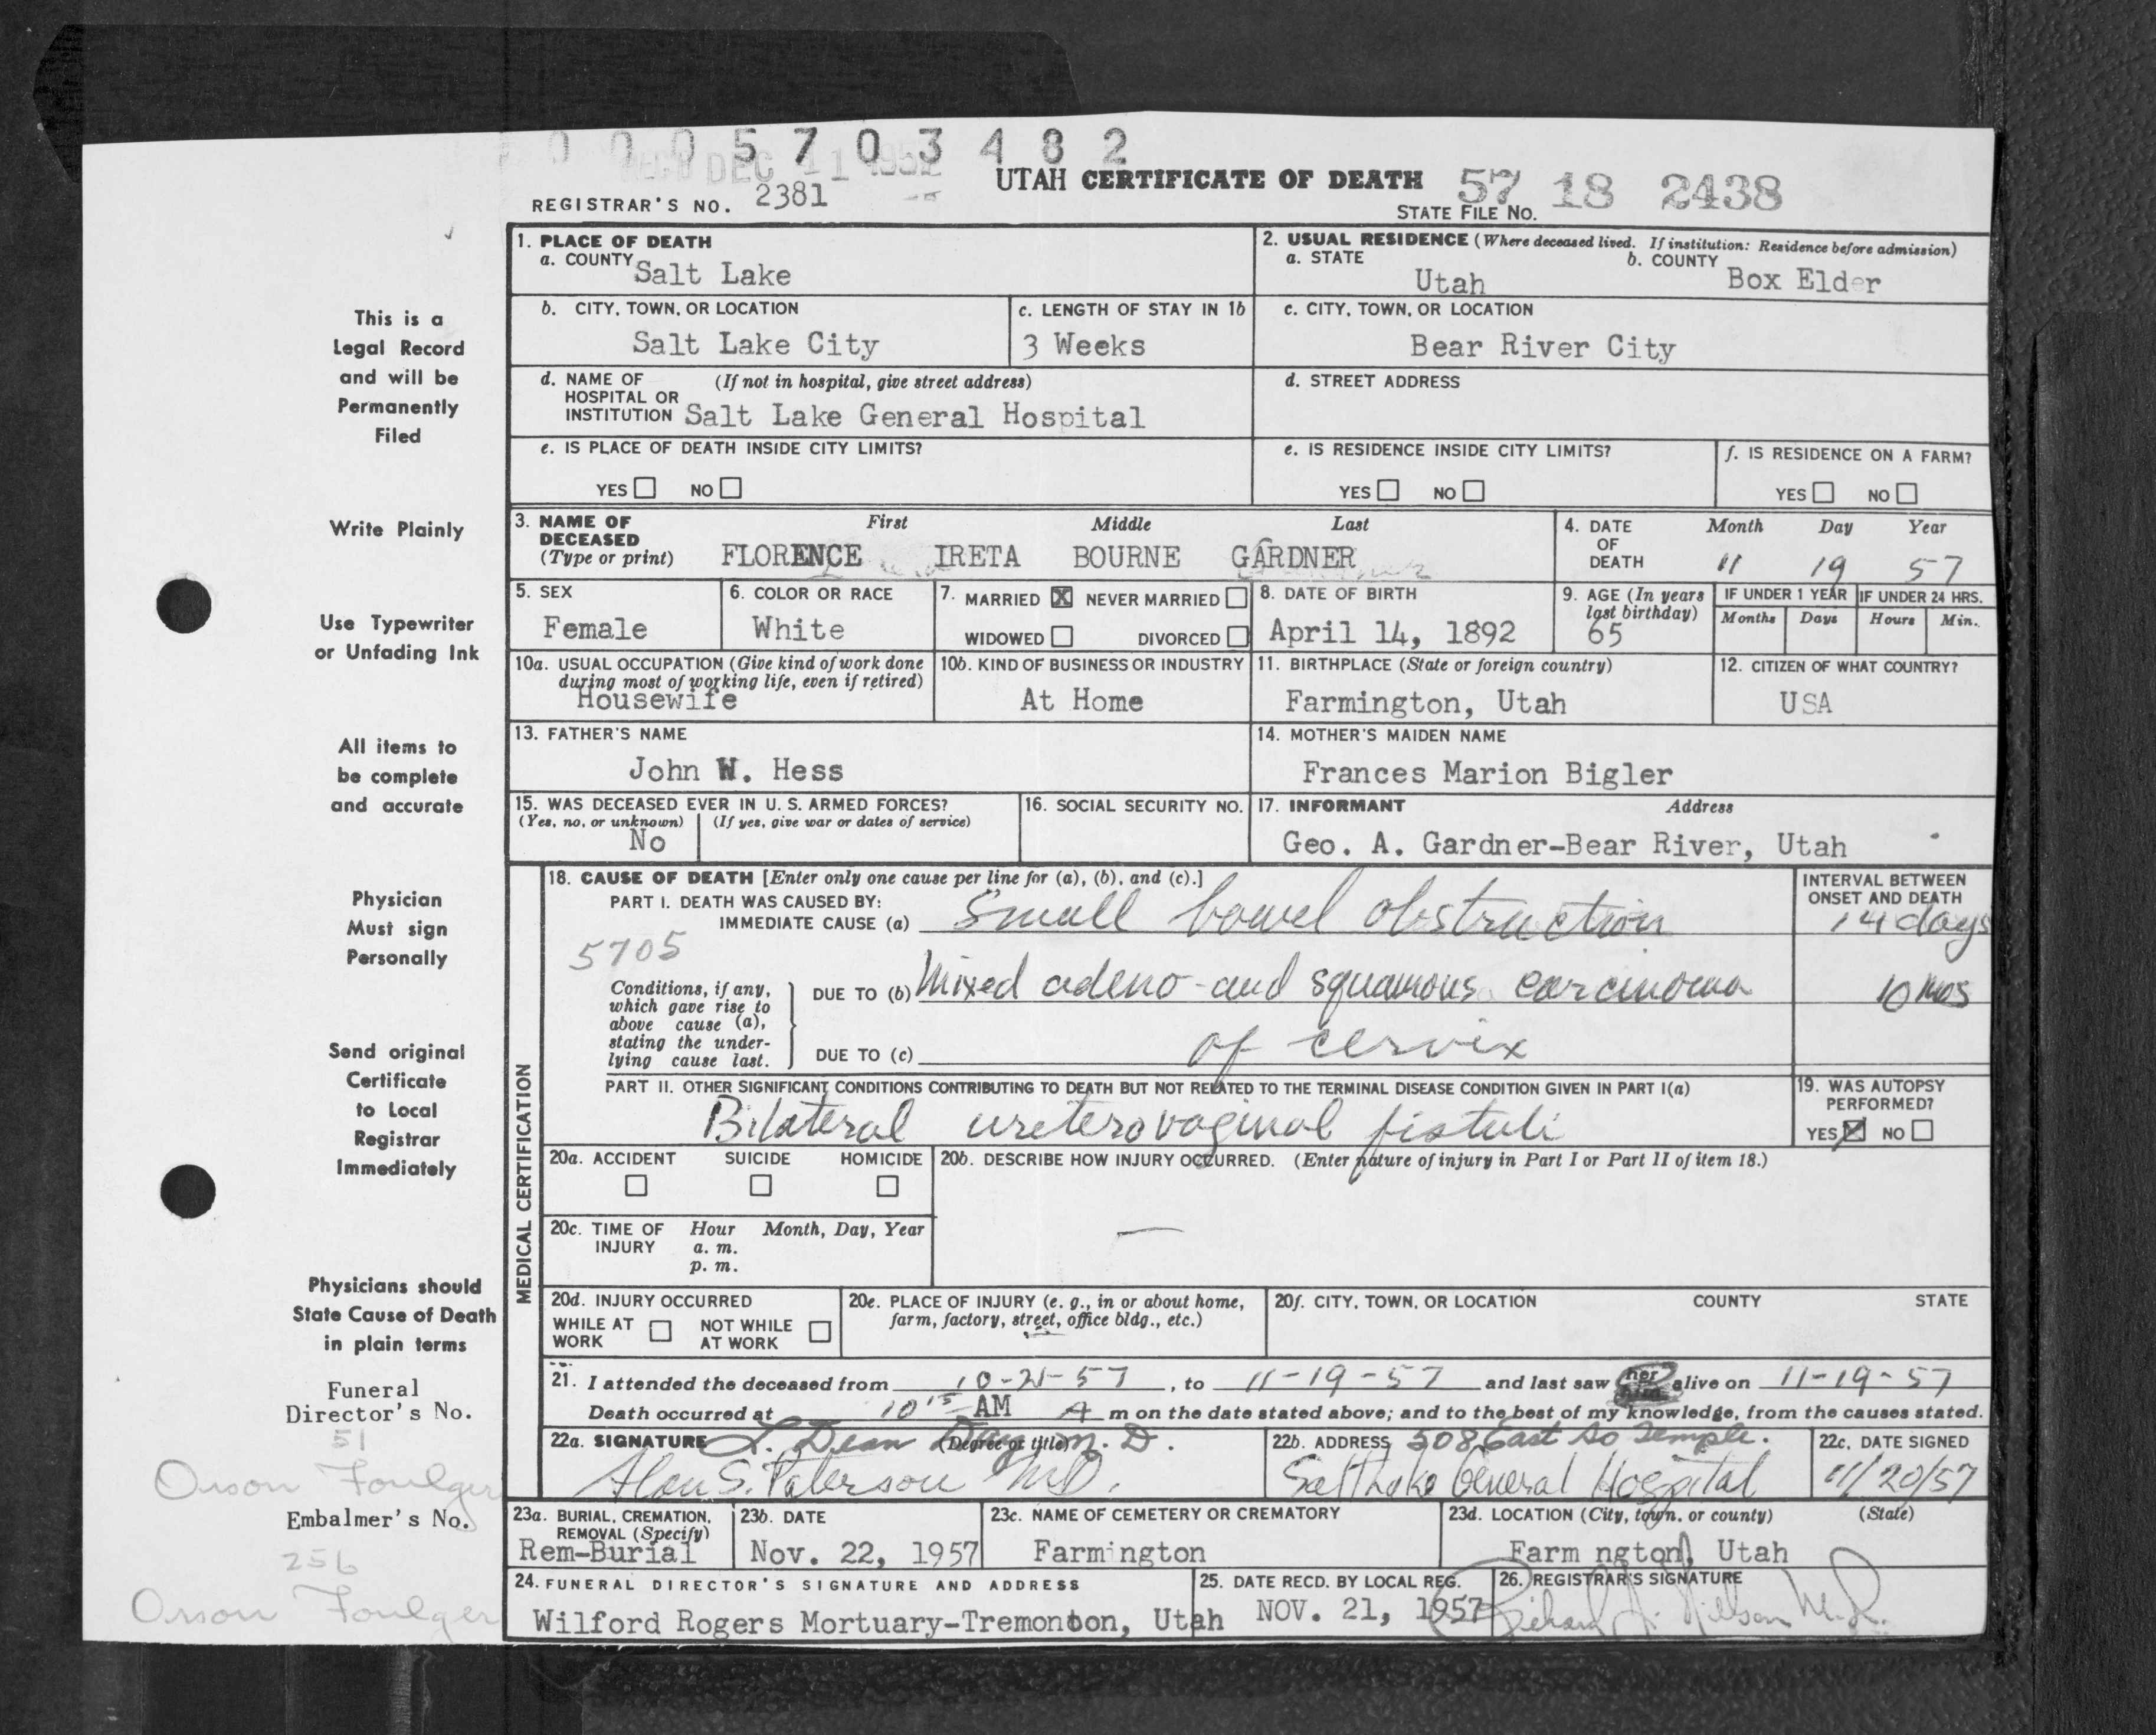 0 0 0 5 7 0 3 4 8 2
REC'D DEC 11 1957
UTAH CERTIFICATE OF DEATH
REGISTRAR'S NO. 2381
STATE FILE NO. 57 18 2438
1. PLACE OF DEATH
a. COUNTY Salt Lake
2. USUAL RESIDENCE (Where deceased lived. If institution: Residence before admission)
a. STATE Utah b. COUNTY Box Elder
b. CITY, TOWN, OR LOCATION Salt Lake City
c. LENGTH OF STAY IN 1b 3 Weeks
c. CITY, TOWN, OR LOCATION Bear River City
d. NAME OF HOSPITAL OR INSTITUTION (If not in hospital, give street address) Salt Lake General Hospital
d. STREET ADDRESS
e. IS PLACE OF DEATH INSIDE CITY LIMITS?
YES NO
e. IS RESIDENCE INSIDE CITY LIMITS?
YES NO
f. IS RESIDENCE ON A FARM?
YES NO
3. NAME OF DECEASED (Type or print)
First Middle Last
FLORENCE IRETA BOURNE GARDNER
4. DATE OF DEATH
Month Day Year
11 19 57
5. SEX Female
6. COLOR OR RACE White
7. MARRIED X NEVER MARRIED
WIDOWED DIVORCED
8. DATE OF BIRTH April 14, 1892
9. AGE (In years last birthday) 65
IF UNDER 1 YEAR Months Days
IF UNDER 24 HRS. Hours Min.
10a. USUAL OCCUPATION (Give kind of work done during most of working life, even if retired) Housewife
10b. KIND OF BUSINESS OR INDUSTRY At Home
11. BIRTHPLACE (State or foreign country) Farmington, Utah
12. CITIZEN OF WHAT COUNTRY? USA
13. FATHER'S NAME John W. Hess
14. MOTHER'S MAIDEN NAME Frances Marion Bigler
15. WAS DECEASED EVER IN U. S. ARMED FORCES?
(Yes, no, or unknown) (If yes, give war or dates of service)
No
16. SOCIAL SECURITY NO.
17. INFORMANT Address
Geo. A. Gardner-Bear River, Utah
MEDICAL CERTIFICATION
18. CAUSE OF DEATH [Enter only one cause per line for (a), (b), and (c).]
INTERVAL BETWEEN ONSET AND DEATH
PART I. DEATH WAS CAUSED BY:
IMMEDIATE CAUSE (a) Small bowel obstruction 14 days
5705
Conditions, if any, which gave rise to above cause (a), stating the underlying cause last.
DUE TO (b) Mixed adeno-and squamous carcinoma 10 mos
DUE TO (c) of cervix
PART II. OTHER SIGNIFICANT CONDITIONS CONTRIBUTING TO DEATH BUT NOT RELATED TO THE TERMINAL DISEASE CONDITION GIVEN IN PART I(a)
Bilateral ureterovaginal fistuli
19. WAS AUTOPSY PERFORMED?
YES X NO
20a. ACCIDENT SUICIDE HOMICIDE
20b. DESCRIBE HOW INJURY OCCURRED. (Enter nature of injury in Part I or Part II of item 18.)
—
20c. TIME OF INJURY Hour Month, Day, Year
a. m.
p. m.
20d. INJURY OCCURRED
WHILE AT WORK NOT WHILE AT WORK
20e. PLACE OF INJURY (e. g., in or about home, farm, factory, street, office bldg., etc.)
20f. CITY, TOWN, OR LOCATION COUNTY STATE
21. I attended the deceased from 10-21-57, to 11-19-57 and last saw her alive on 11-19-57
Death occurred at 10 15 AM A m on the date stated above; and to the best of my knowledge, from the causes stated.
22a. SIGNATURE (Degree or title) L. Dean Day M. D.
Alan S. Paterson MD.
22b. ADDRESS 508 East So Temple.
Salt Lake General Hospital
22c. DATE SIGNED 11/20/57
23a. BURIAL, CREMATION, REMOVAL (Specify) Rem-Burial
23b. DATE Nov. 22, 1957
23c. NAME OF CEMETERY OR CREMATORY Farmington
23d. LOCATION (City, town, or county) (State)
Farm ngton, Utah
24. FUNERAL DIRECTOR'S SIGNATURE AND ADDRESS
Wilford Rogers Mortuary-Tremonton, Utah
25. DATE RECD. BY LOCAL REG. NOV. 21, 1957
26. REGISTRAR'S SIGNATURE
This is a
Legal Record
and will be
Permanently
Filed
Write Plainly
Use Typewriter
or Unfading Ink
All items to
be complete
and accurate
Physician
Must sign
Personally
Send original
Certificate
to Local
Registrar
Immediately
Physicians should
State Cause of Death
in plain terms
Funeral
Director's No.
51
Orson Foulger
Embalmer's No.
256
Orson Foulger